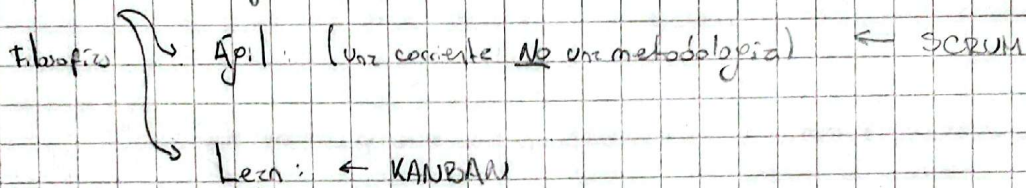 Filosofía Ágil: (una corriente No una metodología) ← SCRUM
Lean: ← KANBAN